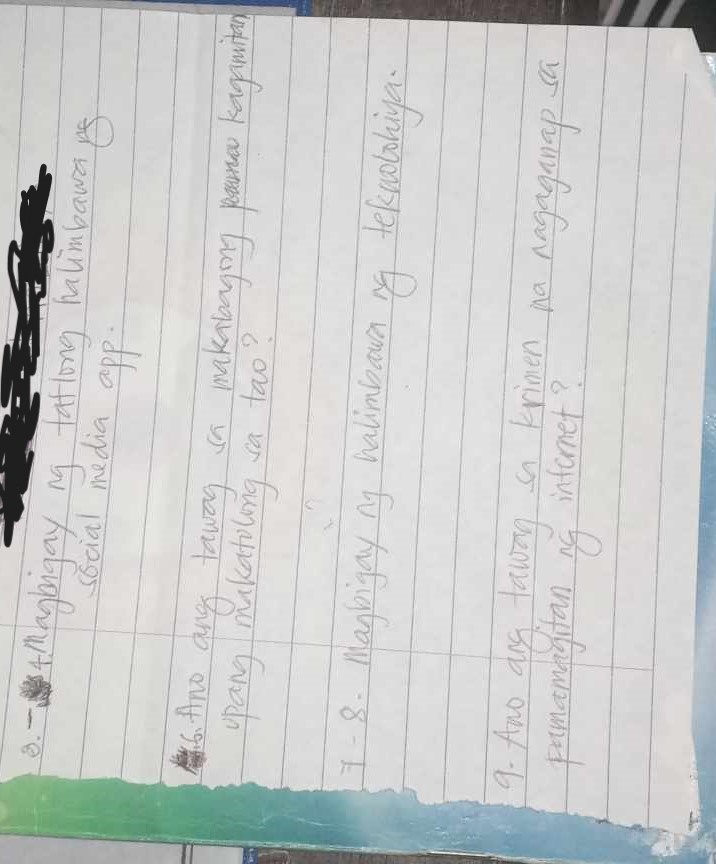 3. - 4 Magbigay ng tatlong halimbawa ng
social media app.
6. Ano ang tawag sa makabagong kagamitan
upang makatulong sa tao?
7 - 8. Magbigay ng halimbawa ng teknolohiya.
9. Ano ang tawag sa krimen na nagaganap sa
pamamagitan ng internet?